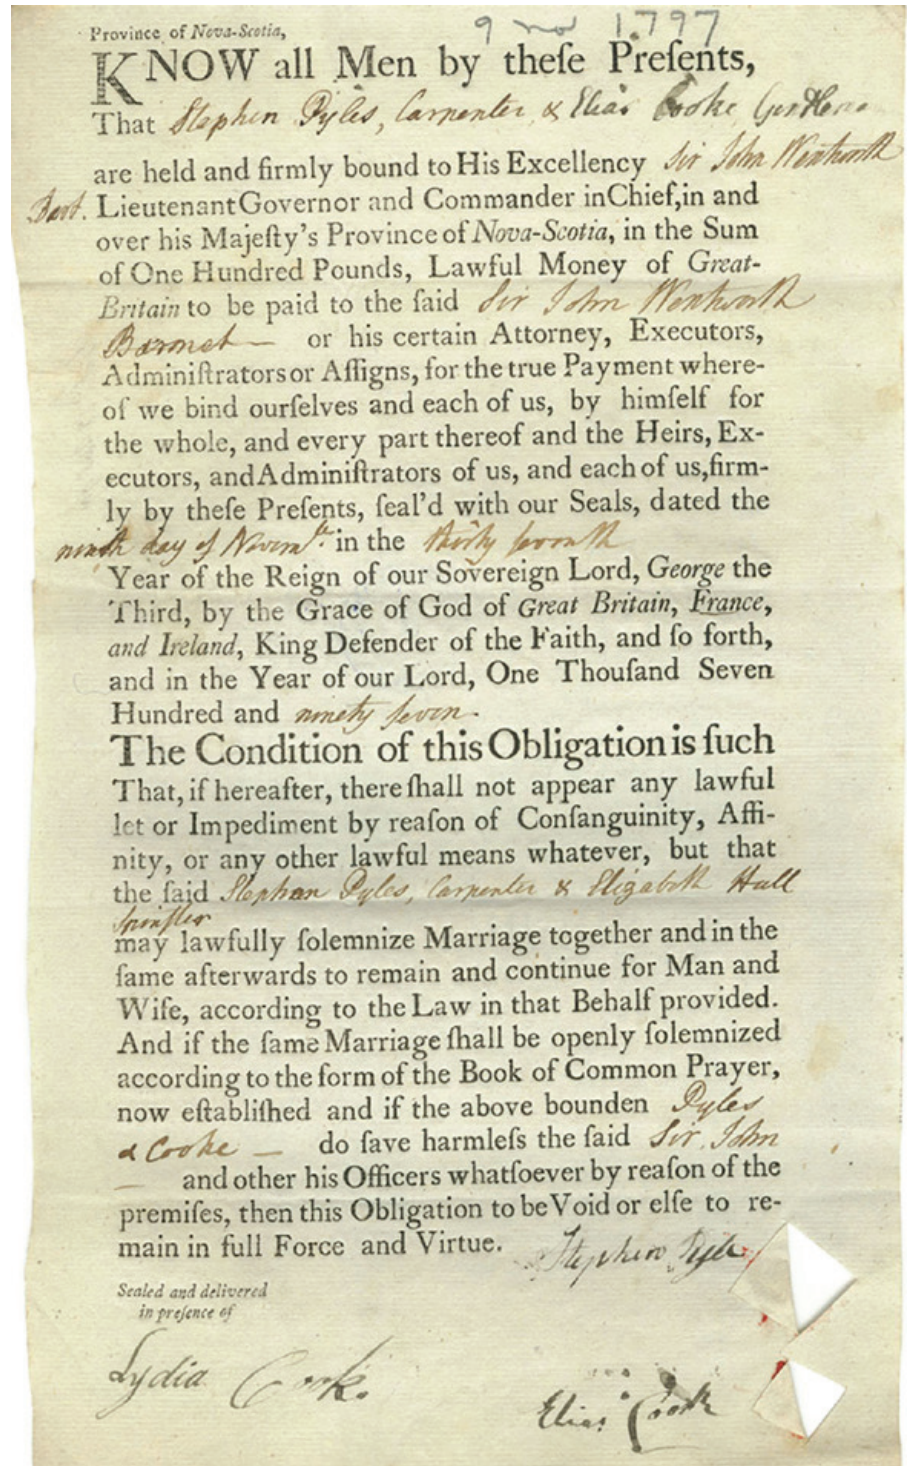 9 nov 1797
Province of Nova-Scotia,
KNOW all Men by theſe Preſents,
That Stephen Pyles, Carpenter & Elias Cooke Gentlem
are held and firmly bound to His Excellency Sir John Wentworth
Bart. Lieutenant Governor and Commander in Chief, in and
over his Majeſty's Province of Nova-Scotia, in the Sum
of One Hundred Pounds, Lawful Money of Great-
Britain to be paid to the ſaid Sir John Wentworth
Baronet — or his certain Attorney, Executors,
Adminiſtrators or Aſſigns, for the true Payment where-
of we bind ourſelves and each of us, by himſelf for
the whole, and every part thereof and the Heirs, Ex-
ecutors, and Adminiſtrators of us, and each of us, firm-
ly by theſe Preſents, ſeal'd with our Seals, dated the
ninth day of Novemr. in the thirty ſeventh
Year of the Reign of our Sovereign Lord, George the
Third, by the Grace of God of Great Britain, France,
and Ireland, King Defender of the Faith, and ſo forth,
and in the Year of our Lord, One Thouſand Seven
Hundred and ninety ſeven.
The Condition of this Obligation is ſuch
That, if hereafter, there ſhall not appear any lawful
let or Impediment by reaſon of Conſanguinity, Affi-
nity, or any other lawful means whatever, but that
the ſaid Stephen Pyles, Carpenter & Elizabeth Hall
Spinſter
may lawfully ſolemnize Marriage together and in the
ſame afterwards to remain and continue for Man and
Wife, according to the Law in that Behalf provided.
And if the ſame Marriage ſhall be openly ſolemnized
according to the form of the Book of Common Prayer,
now eſtabliſhed and if the above bounden Pyles
& Cooke — do ſave harmleſs the ſaid Sir John
— and other his Officers whatſoever by reaſon of the
premiſes, then this Obligation to be Void or elſe to re-
main in full Force and Virtue.
Stephen Pyle
Sealed and delivered
in preſence of
Lydia Cook.
Elias Cook